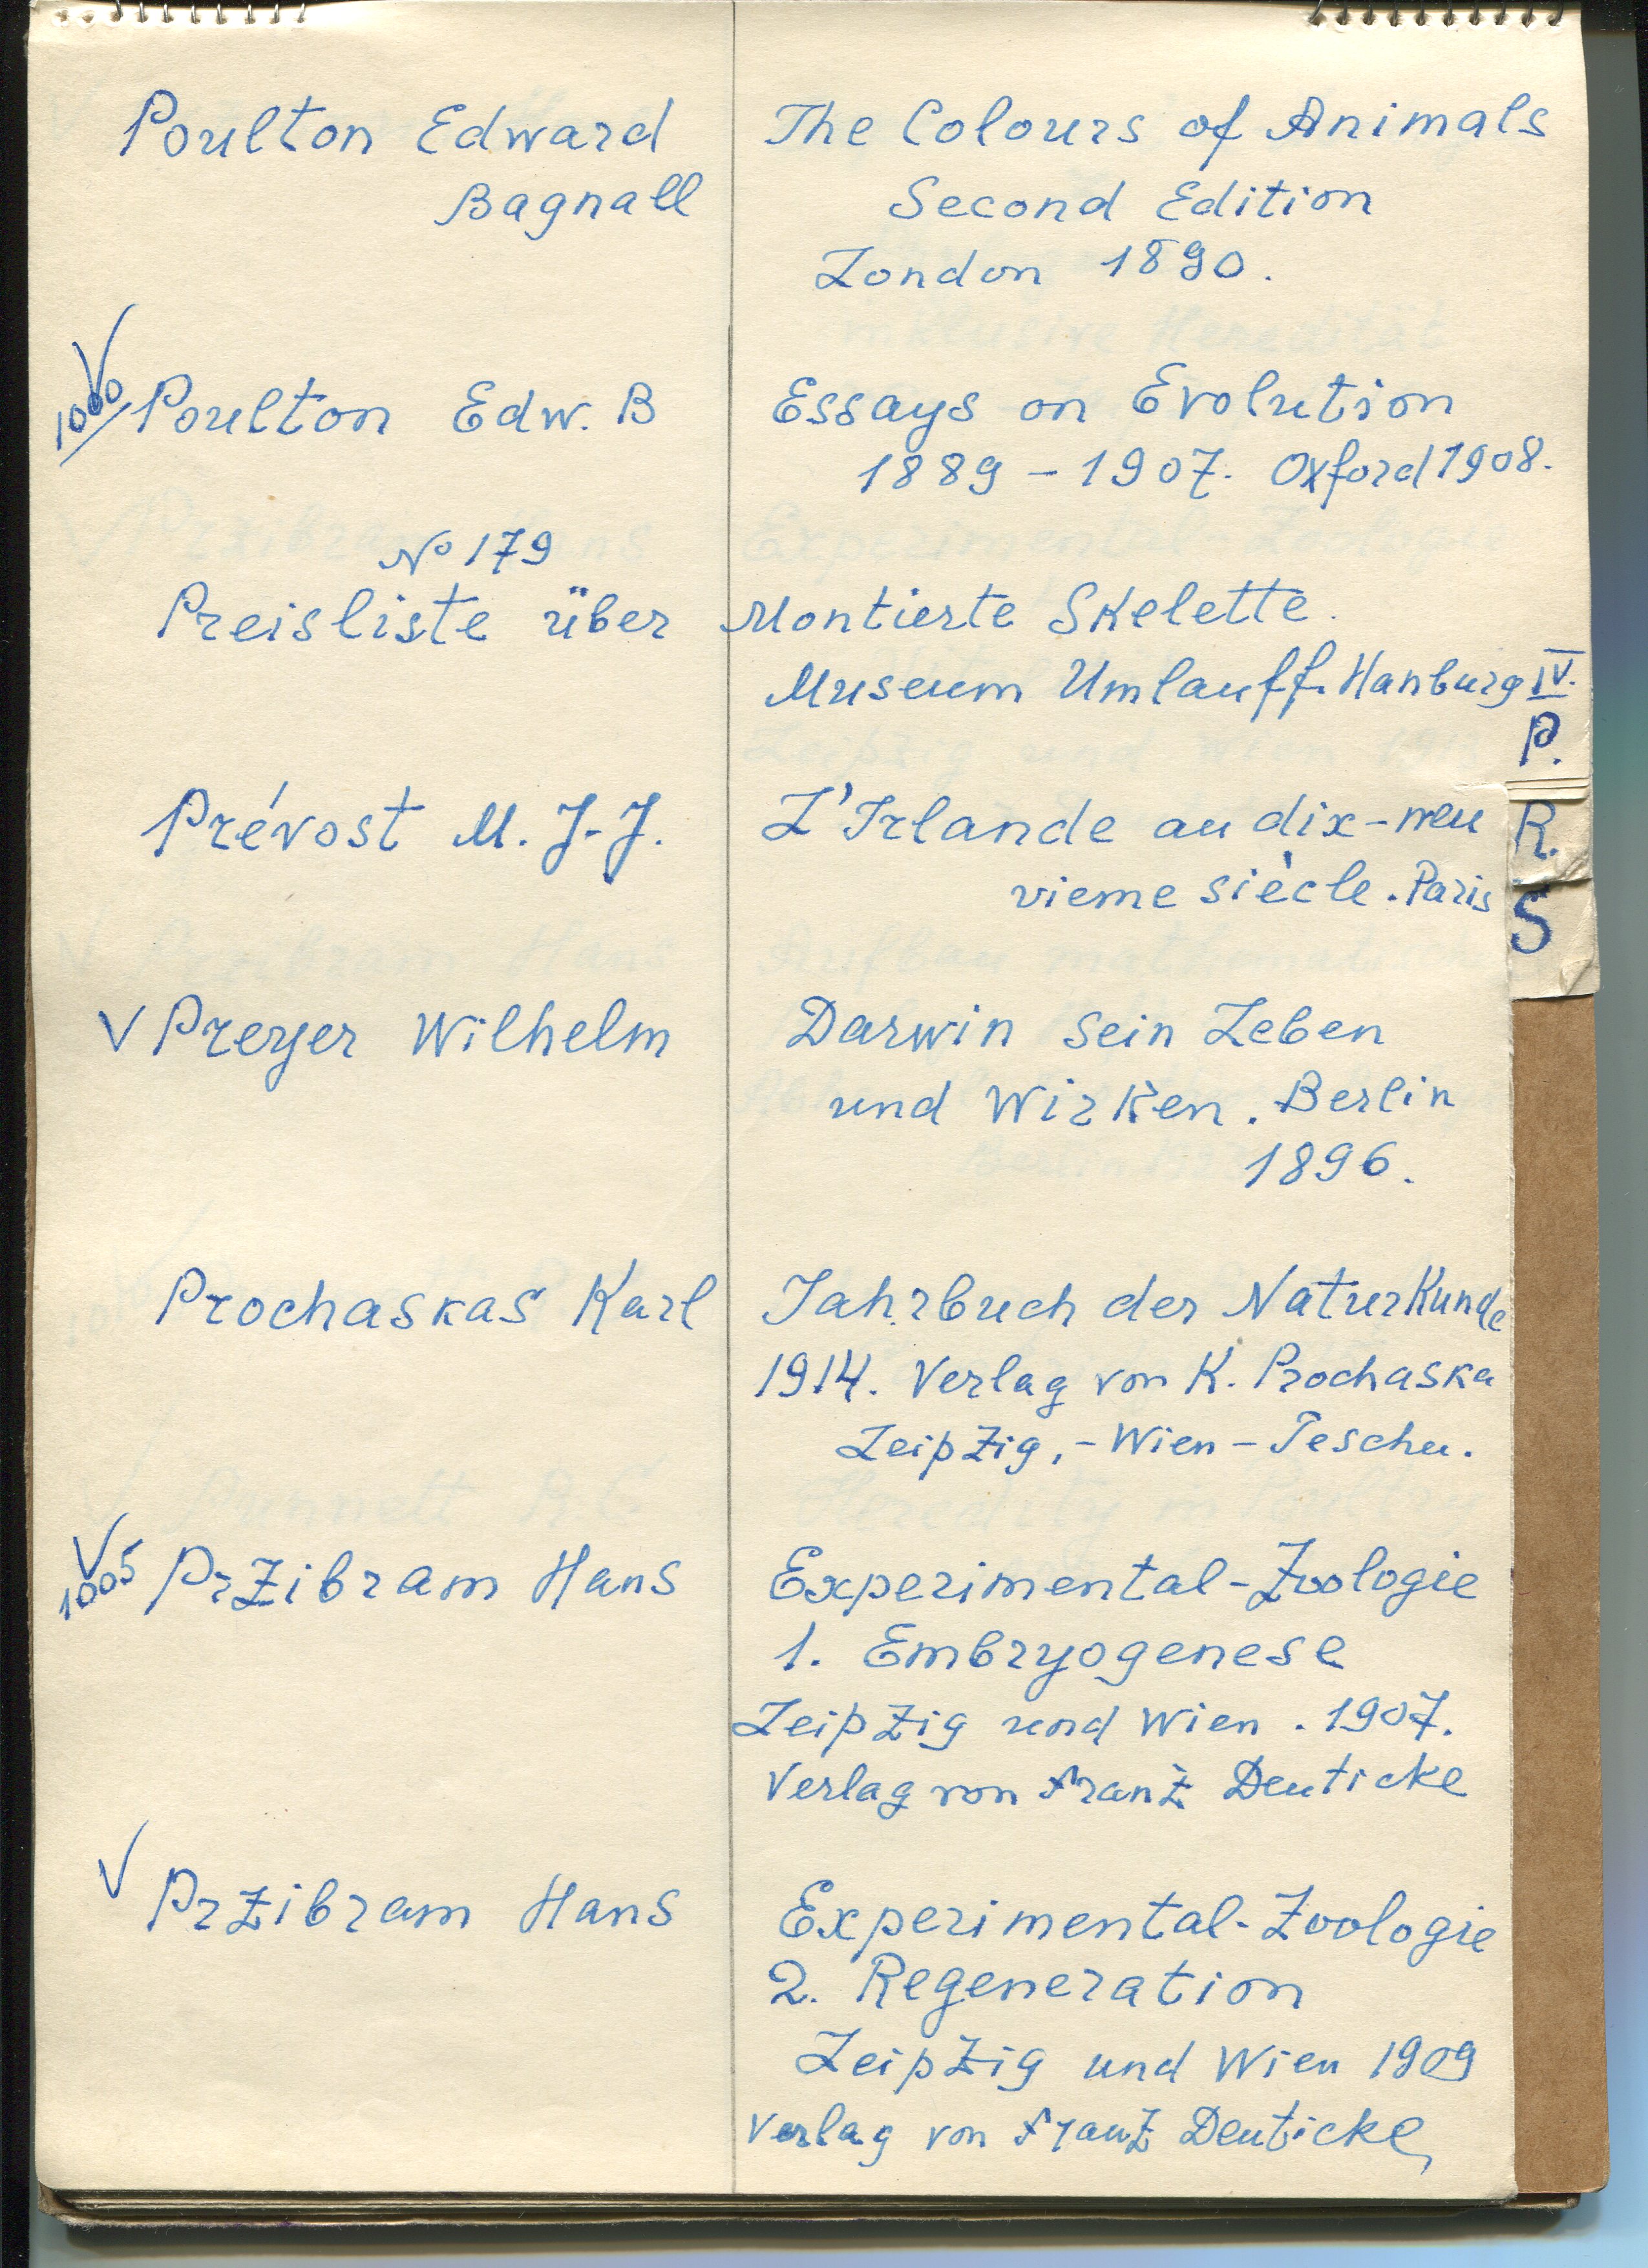 Poulton Edward The Colours of Animals
Bagnall Second Edition
London 1890.
V
1000 Poulton Edw. B Essays on Evolution
1889 – 1907. Oxford 1908.
No 179
Preisliste über Montierte Skelette.
Museum Umlauff. Hanburg IV.
P.
Prévost M. J-J. L'Irlande au dix-neu
R.
vieme siècle. Paris
S
V Preyer Wilhelm Darwin sein Leben
und Wirken. Berlin
1896.
Prochaskas Karl Jahrbuch der Naturkunde
1914. Verlag von K. Prochaska
Leipzig, - Wien - Teschen.
V
1005 Przibram Hans Experimental-Zoologie
1. Embryogenese
Leipzig und Wien. 1907.
Verlag von Franz Deuticke
V
Przibram Hans Experimental-Zoologie
2. Regeneration
Leipzig und Wien 1909
Verlag von Franz Deuticke